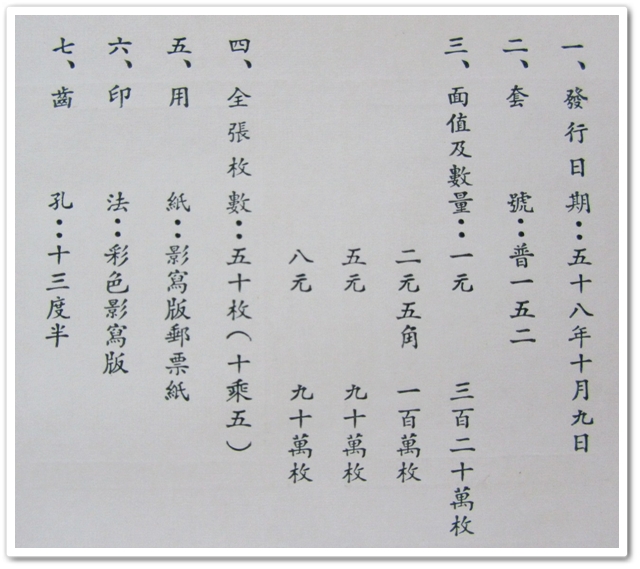 一、發行日期：五十八年十月九日
二、套號：普一五二
三、面值及數量：一元 三百二十萬枚
二元五角 一百萬枚
五元 九十萬枚
八元 九十萬枚
四、全張枚數：五十枚（十乘五）
五、用紙：影寫版郵票紙
六、印法：彩色影寫版
七、齒孔：十三度半